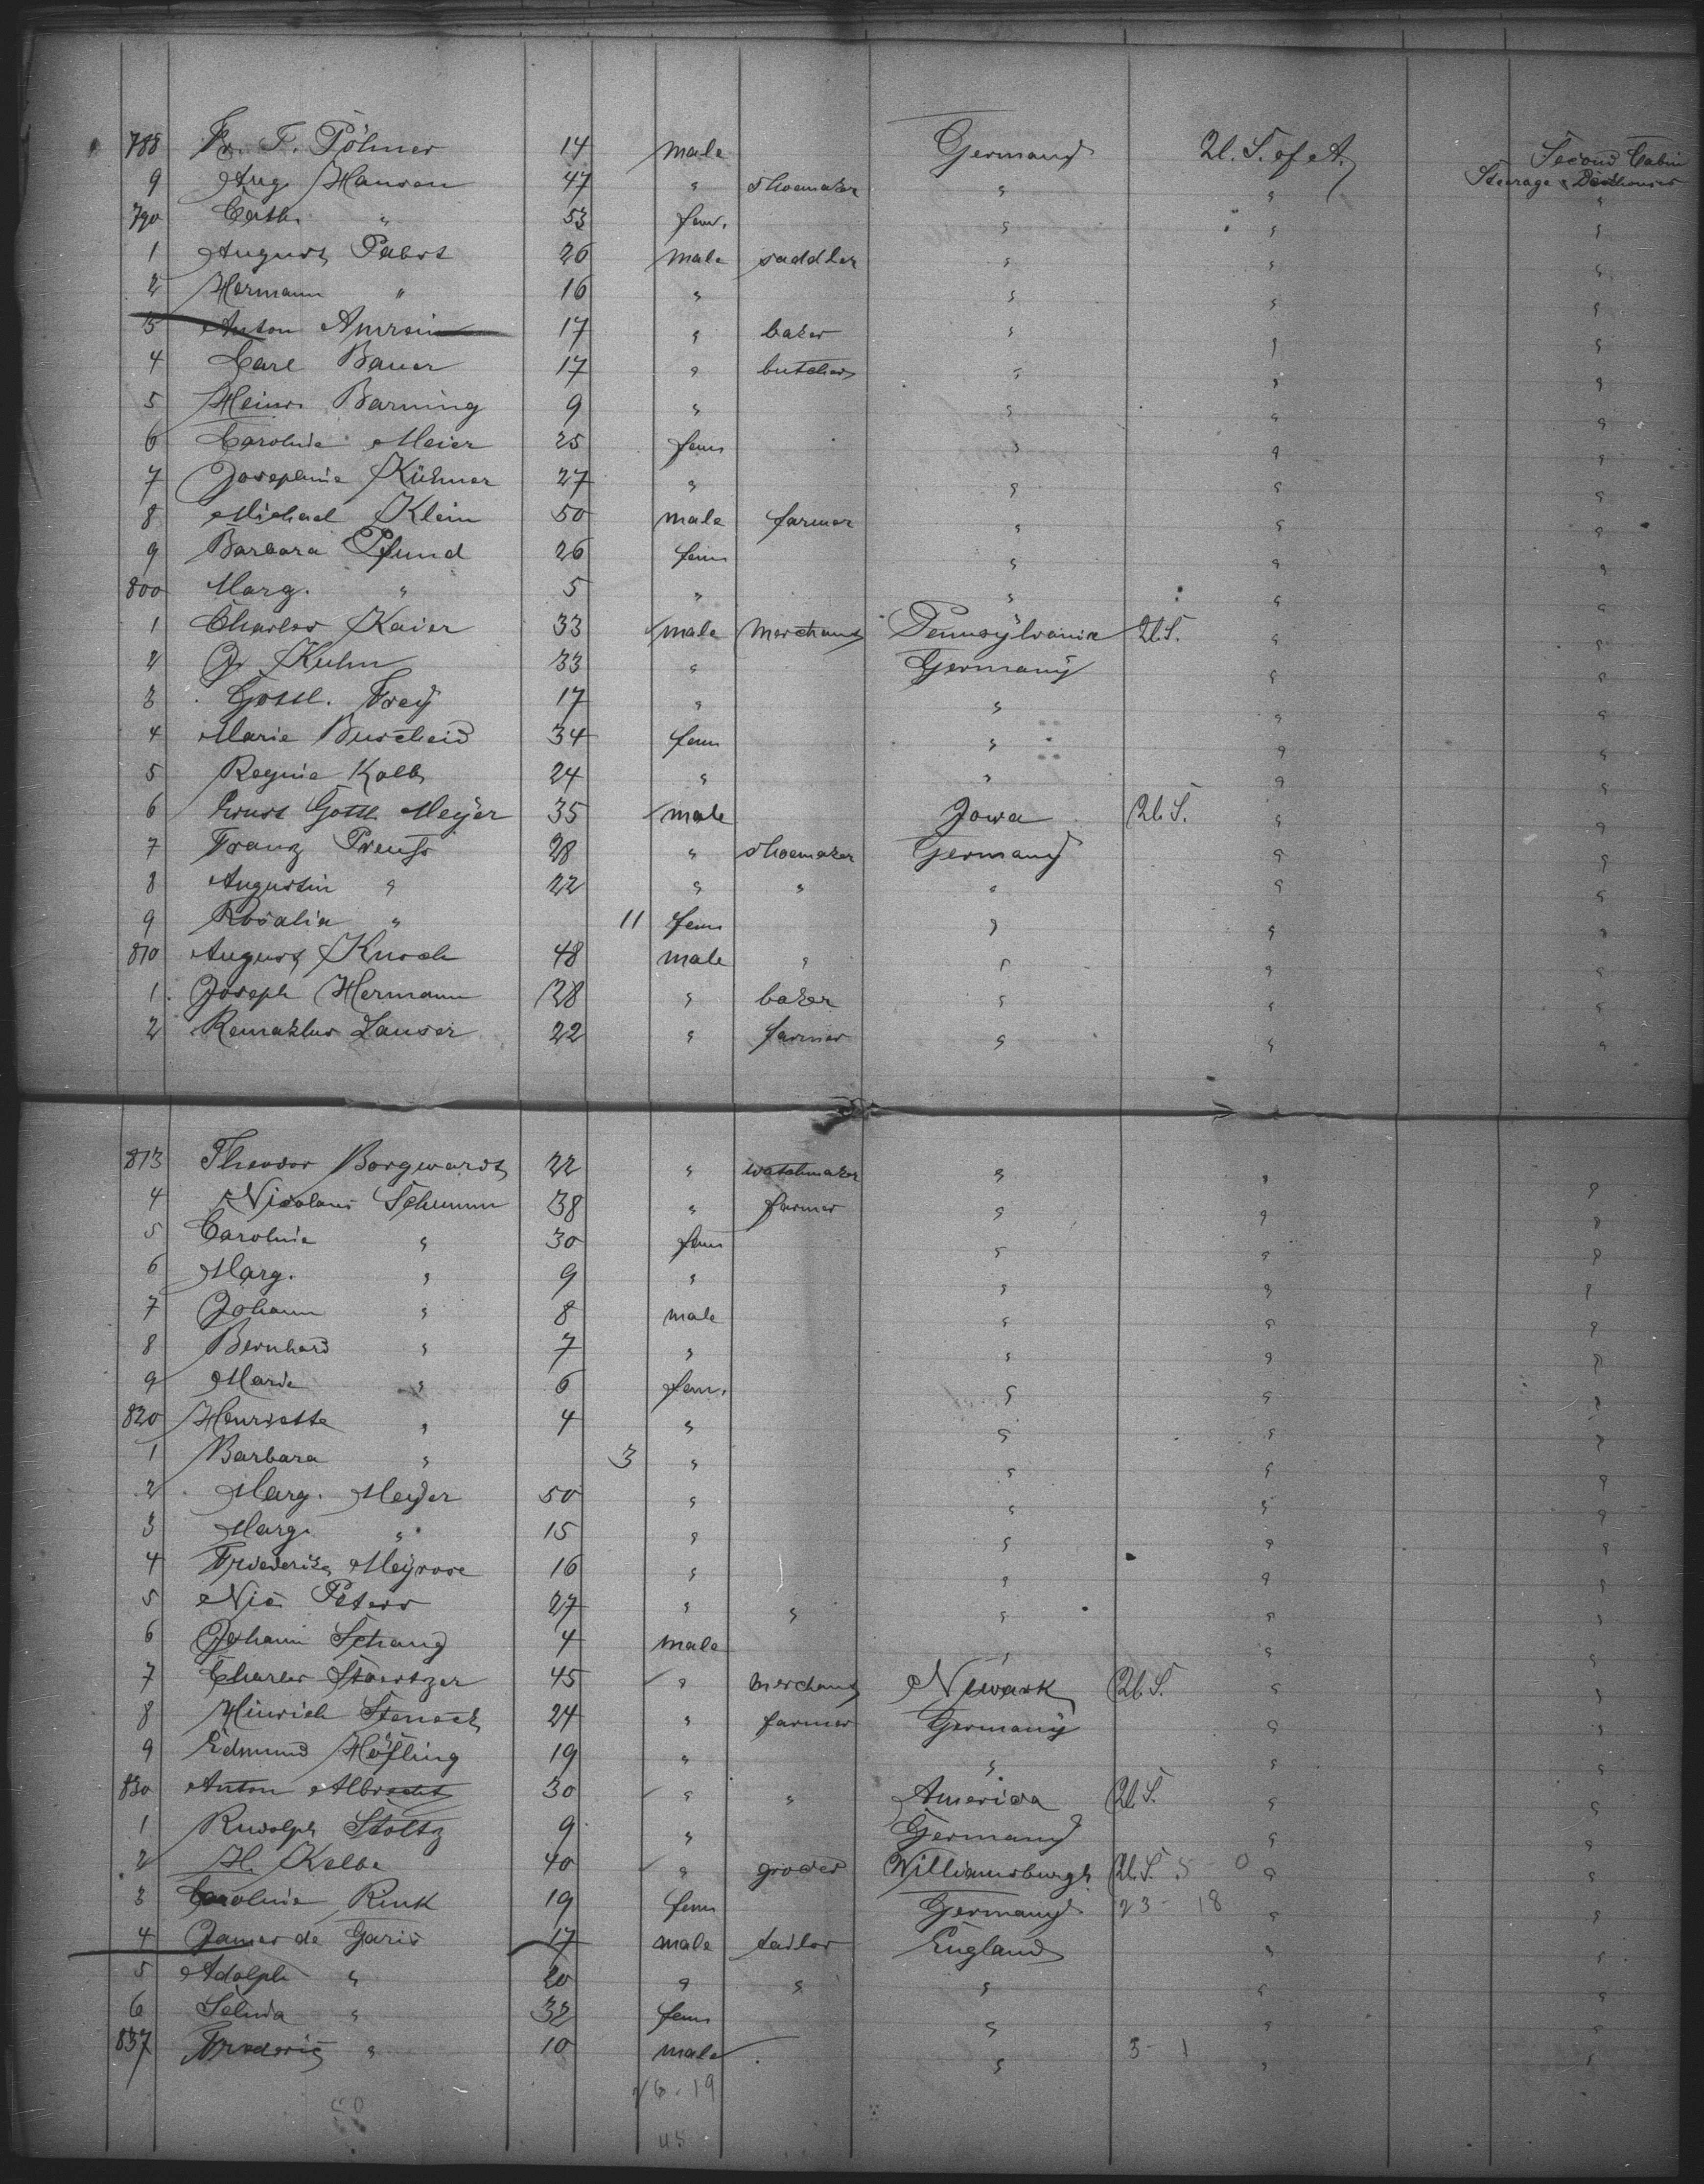 788 Fr. F. Pöhner 14 male Germany U. S. of A. Second Cabin
9 Aug. Hansen 47 " shoemaker " " Steerage Deckhouses
790 Cath. " 53 fem. " " "
1 August Pabst 26 male saddler " " "
2 Hermann " 16 " " " "
3 Anton 17 " baker " " "
4 Carl Bauer 17 " butcher " " "
5 Heinr. Barning 9 " " " "
6 Caroline Meier 25 fem " " "
7 Josephine Kühner 27 " " " "
8 Michael Klein 50 male farmer " " "
9 Barbara Pfund 26 fem " " "
800 Marg. " 5 " " " "
1 Charles Kaier 33 male merchant Pennsylvania U.S. " "
2 Jr Kuhn 33 " Germany " "
3 Gottl. Frey 17 " " " "
4 Marie Buscheid 34 fem " " "
5 Regine Kolb 24 " " " "
6 Ernst Gottl. Meyer 35 male Jowa U.S. " "
7 Franz Preuß 28 " shoemaker Germany " "
8 Augustin " 22 " " " " "
9 Rosalia " 11 fem " " "
810 August Knoch 48 male " " " "
1 Joseph Hermann 38 " baker " " "
2 Remaklus Lanser 22 " farmer " " "
813 Theodor Borgwardt 22 " watchmaker " " "
4 Nicolaus Schumm 38 " farmer " " "
5 Caroline " 30 fem " " "
6 Marg. " 9 " " " "
7 Johann " 8 male " " "
8 Bernhard " 7 " " " "
9 Marie " 6 fem. " " "
820 Henriette " 4 " " " "
1 Barbara " 3 " " " "
2 Marg. Meyer 50 " " " "
3 Marg. " 15 " " " "
4 Friederike Meyrose 16 " " " "
5 Nic. Peters 27 " " " " "
6 Johann Schang 4 male " " "
7 Charles Stoertzer 45 " merchant Newark U.S. " "
8 Hinrich 24 " farmer Germany " "
9 Edmund Höfling 19 " " " "
830 Anton Albrecht 30 " " America U.S. " "
1 Rudolph Stoltz 9 " Germany " "
2 H. Kelbe 40 " grocer Williamsburgh U.S. 5 - 0 " "
3 Caroline Rink 19 fem Germany 23 - 18 " "
4 James de Garis 17 male tailor England " "
5 Adolph " 20 " " " " "
6 Selina " 32 fem " " "
837 Frederic " 10 male " 3 - 1 " "
26 - 19
45